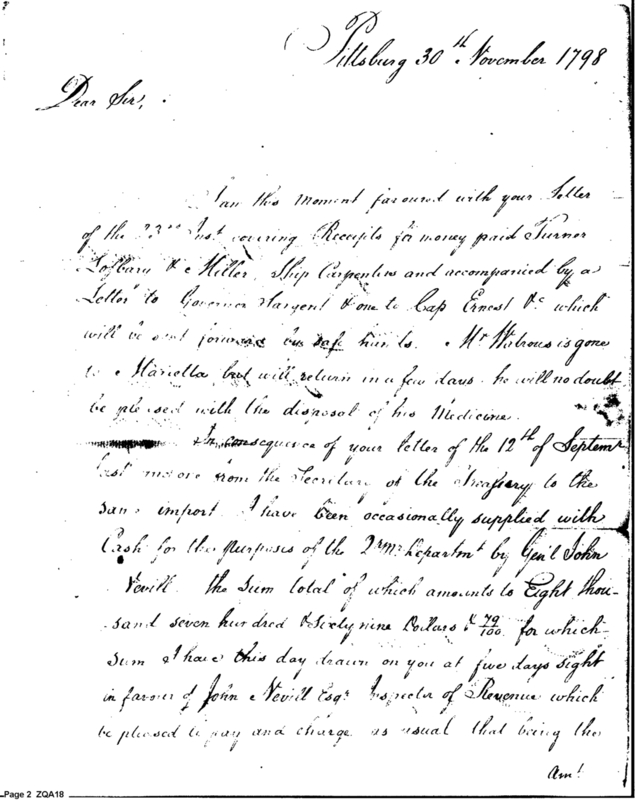 Pittsburg 30th November 1798
Dear Sir,
I am this moment favoured with your Letter
of the 23rd Inst covering Receipts for money paid Turner
& Miller, Ship Carpenters and accompanied by a
Letter to Governor Sargent & one to Cap Ernest &c which
will be sent forward by safe hands. Mr Watrous is gone
to Marietta but will return in a few days. he will no doubt
be pleased with the disposal of his Medicine.
In consequence of your letter of the 12th of Septemr
last one from the Secretary of the Treasury to the
same import I have been occasionally supplied with
Cash for the purposes of the Departmt by Genl John
Nevill the Sum total of which amounts to Eight thou-
sand seven hundred & sixty nine Dollars & 79/100 for which
Sum I have this day drawn on you at five days sight
in favour of John Nevill Esqr Inspector of Revenue which
be pleased to pay and charge as usual that being the
amt
Page 2 ZQA18